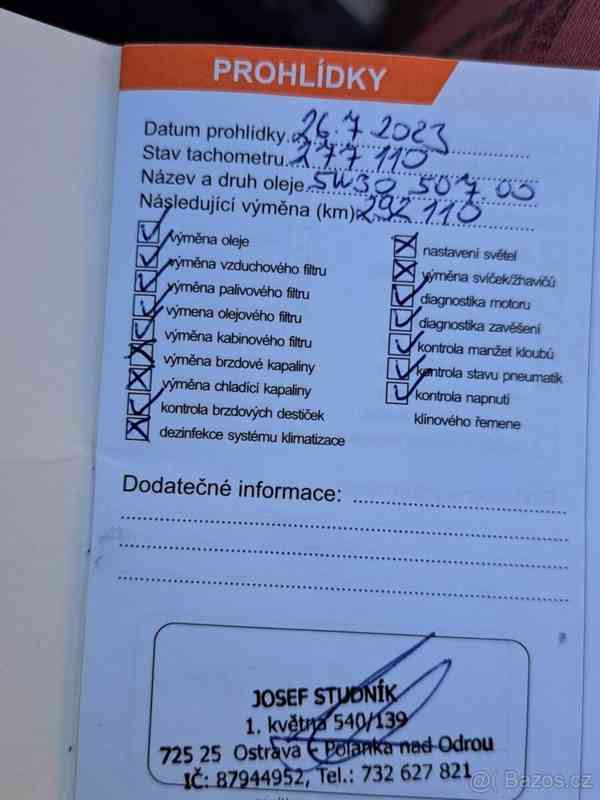 PROHLÍDKY
Datum prohlídky 26.7 2023
Stav tachometru 277 110
Název a druh oleje 5W30 507.00
Následující výměna (km) 292 110
výměna oleje
výměna vzduchového filtru
výměna palivového filtru
výmena olejového filtru
výměna kabinového filtru
výměna brzdové kapaliny
výměna chladící kapaliny
kontrola brzdových destiček
dezinfekce systému klimatizace
nastavení světel
výměna svíček/žhavičů
diagnostika motoru
diagnostika zavěšení
kontrola manžet kloubů
kontrola stavu pneumatik
kontrola napnutí
klínového řemene
Dodatečné informace:
JOSEF STUDNÍK
1. května 540/139
725 25 Ostrava - Polanka nad Odrou
IČ: 87944952, Tel.: 732 627 821
Bazos.cz